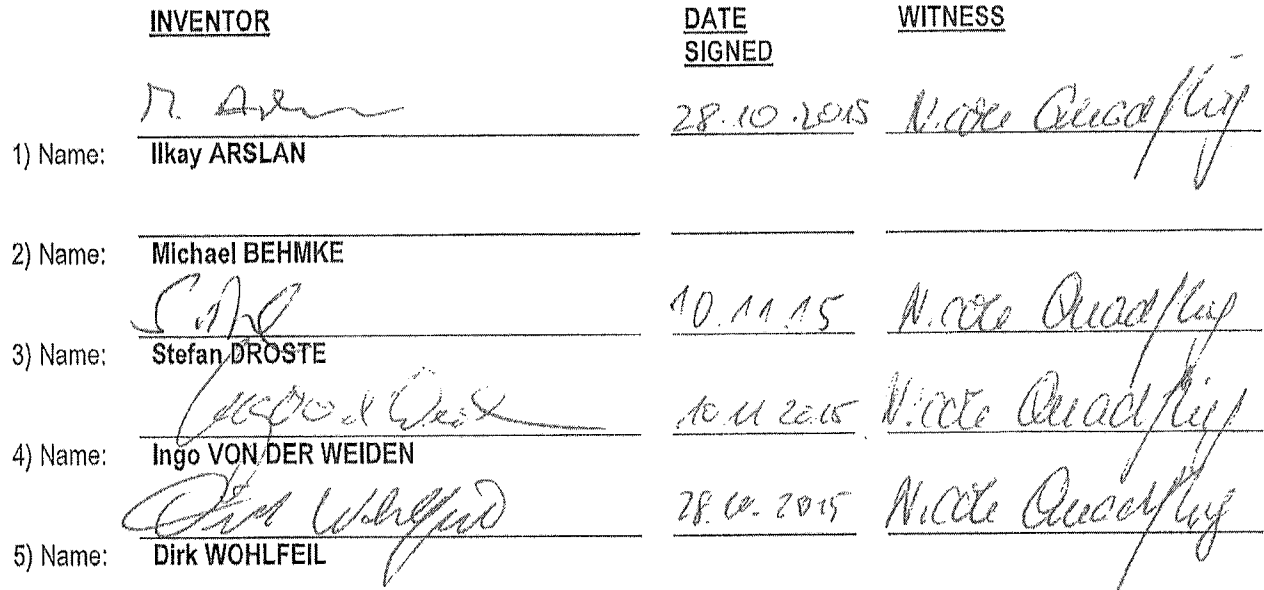 INVENTOR DATE SIGNED WITNESS
28.10.2015 Nicole Quadflieg
1) Name: Ilkay ARSLAN
2) Name: Michael BEHMKE
10.11.15 Nicole Quadflieg
3) Name: Stefan DROSTE
10.11.2015 Nicole Quadflieg
4) Name: Ingo VON DER WEIDEN
Dirk Wohlfeil 28.10.2015 Nicole Quadflieg
5) Name: Dirk WOHLFEIL